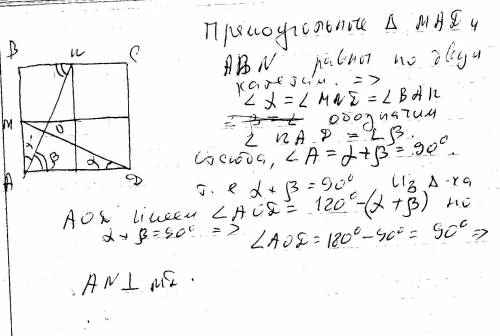 B N C
Прямоугольные Δ MAD и
ABN равны по двум
катетам. =>
∠α = ∠MND = ∠BAN
обозначим
M O
∠NAD = ∠β.
α β α
A D
Отсюда, ∠A = α + β = 90°
т. е α + β = 90° Из Δ-ка
AOD имеем ∠AOD = 120° - (α + β) но
α + β = 90° =>
∠AOD = 180° - 90° = 90° =>
AN ⊥ MD.